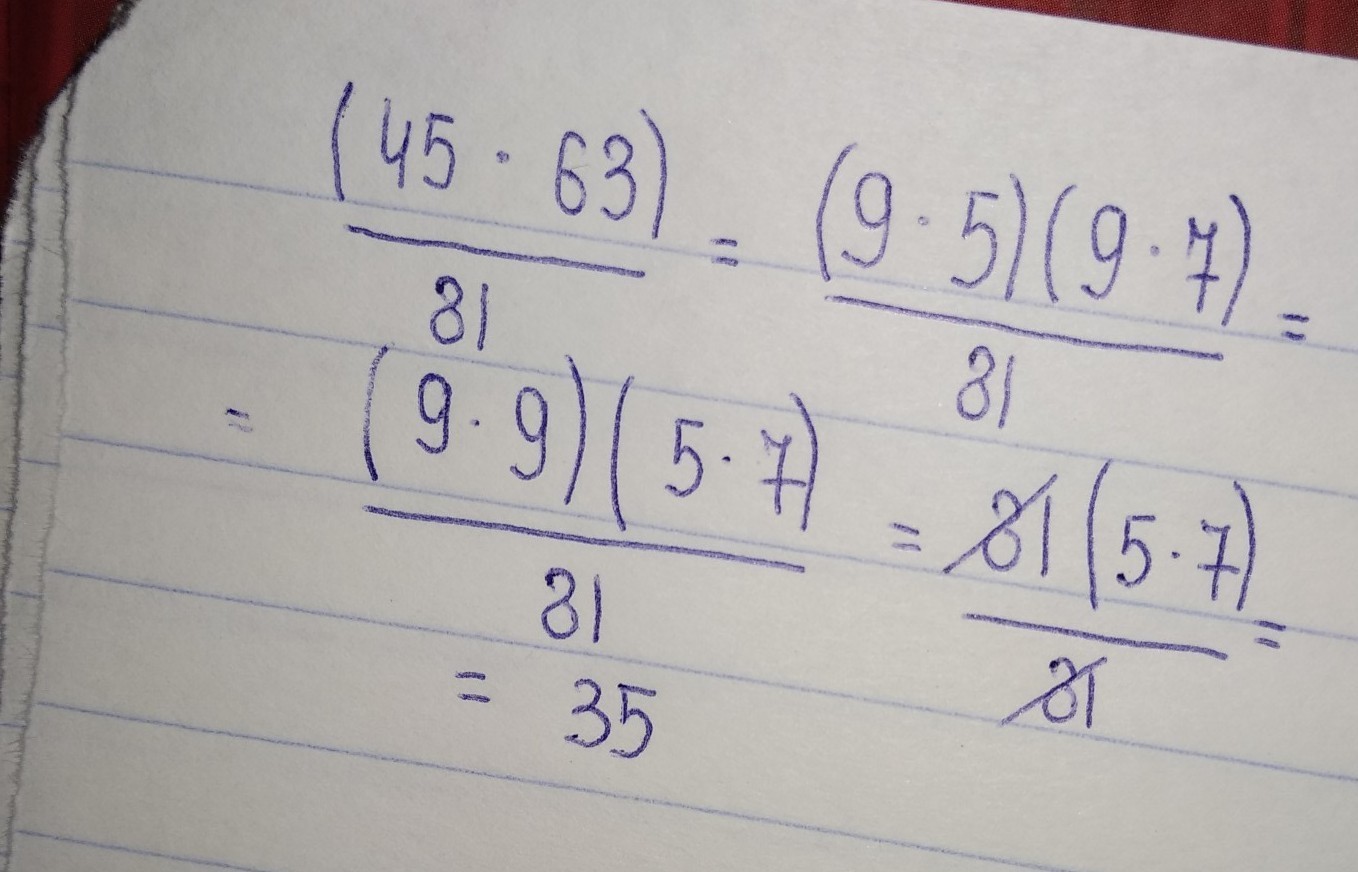 (45 · 63)/81 = (9 · 5)(9 · 7)/81 =
= (9 · 9)(5 · 7)/81 = 81(5 · 7)/81 =
= 35